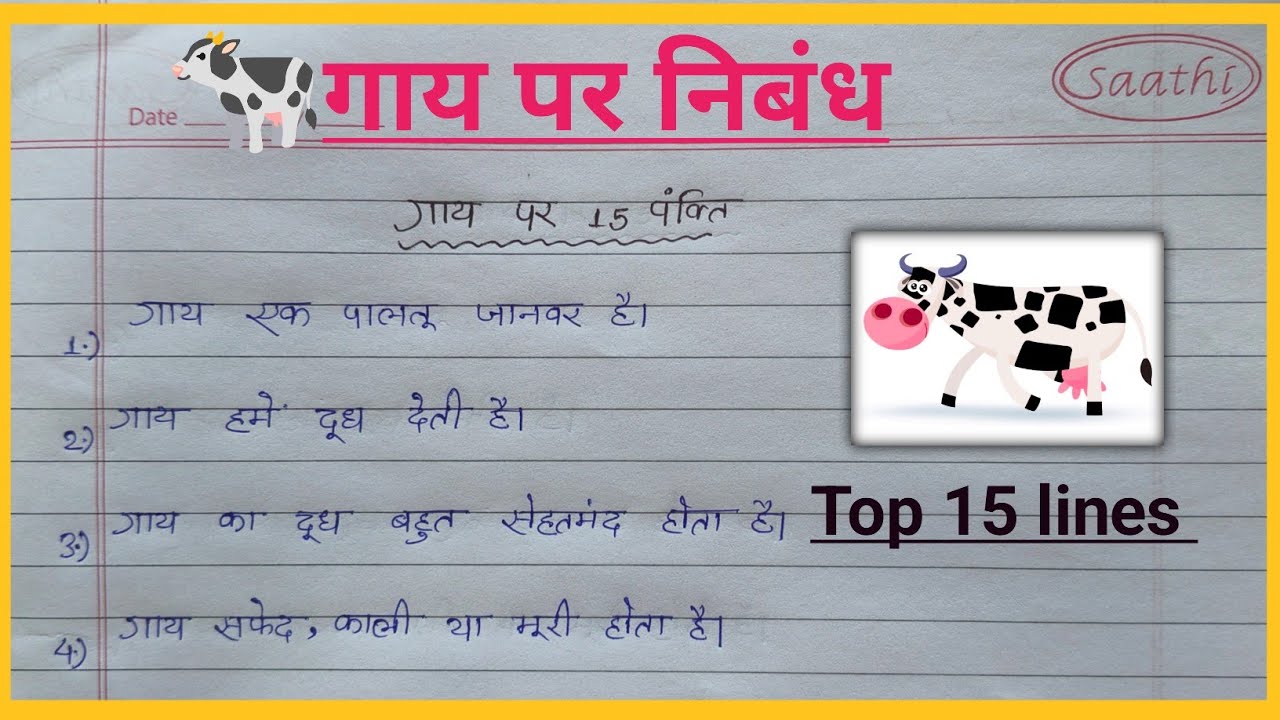 गाय पर निबंध
Saathi
Date
गाय पर 15 पंक्ति
1.) गाय एक पालतू जानवर है।
2.) गाय हमें दूध देती है।
3.) गाय का दूध बहुत सेहतमंद होता है।
Top 15 lines
4.) गाय सफेद, काली या भूरी होता है।